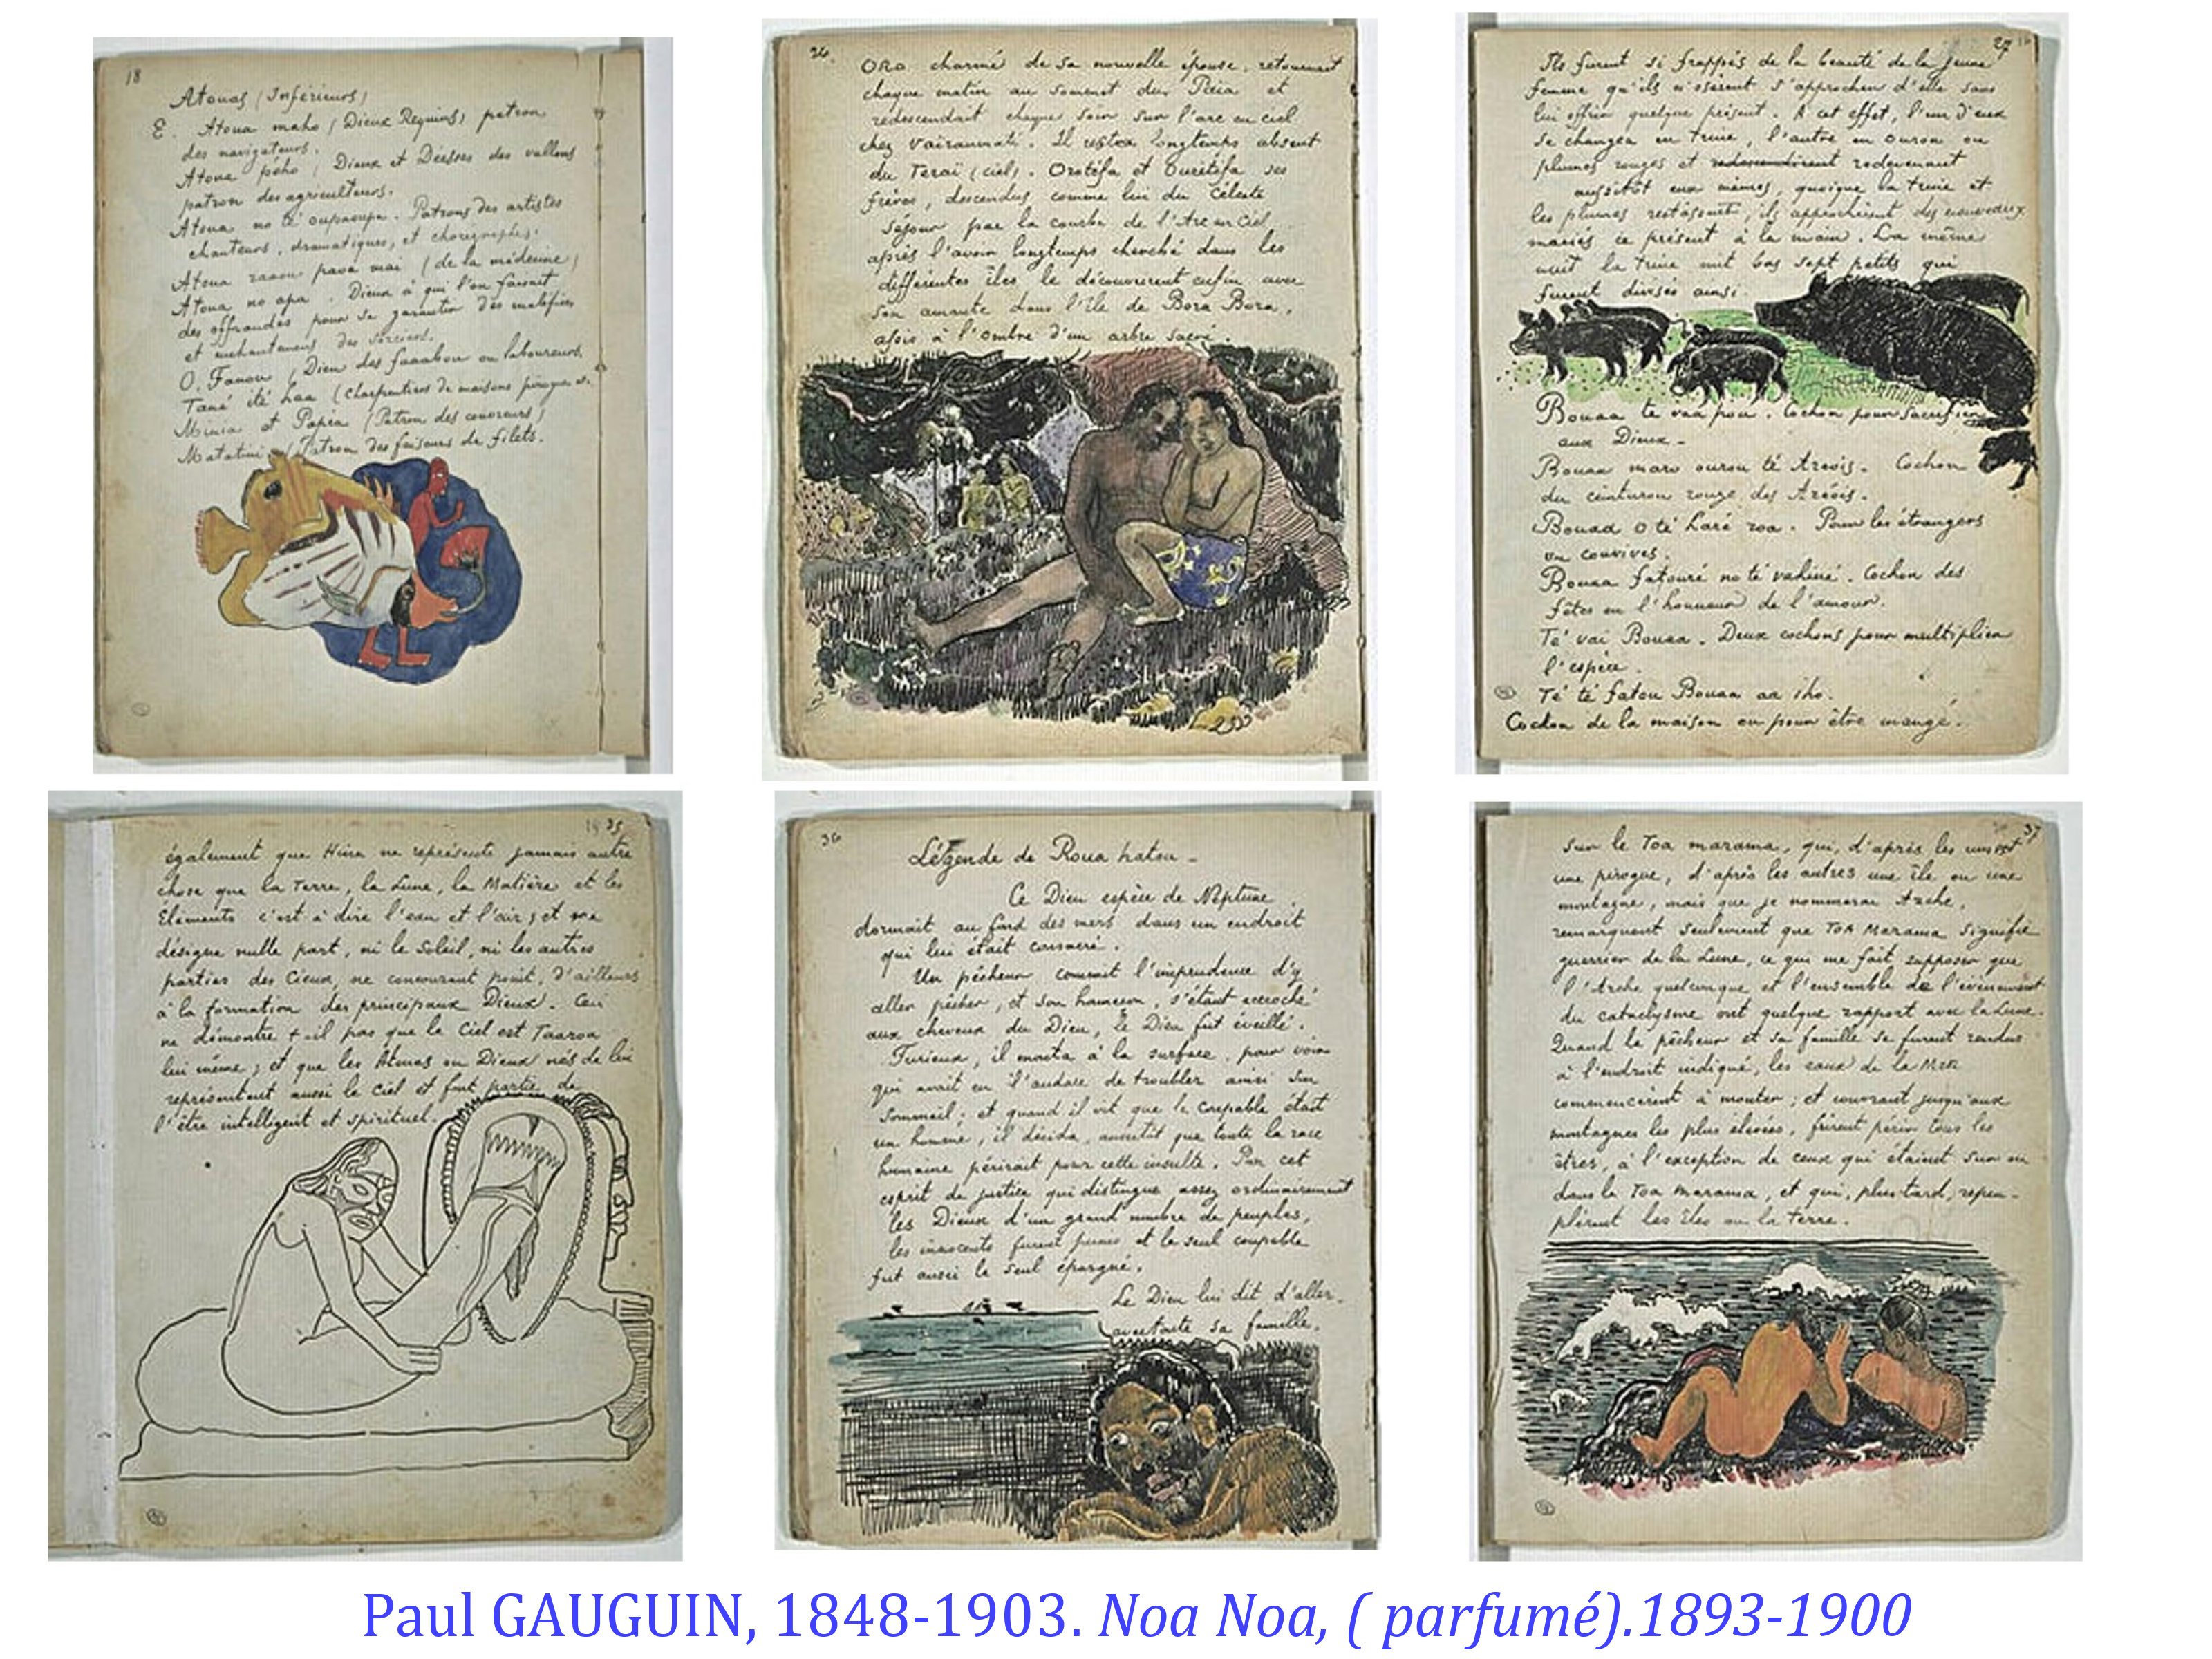 18
Atouas (Inférieurs)
E. Atoua maho (Dieux Requins) patron
des navigateurs.
Atoua pého, Dieux et Déesses des vallons
patron des agriculteurs.
Atoua no té oupaoupa. Patrons des artistes
chanteurs, dramatiques, et chorégraphes.
Atoua raaou pava mai (de la médecine)
Atoua no apa. Dieux à qui l'on faisait
des offrandes pour se garantir des maléfices
et enchantements des sorciers.
O. Fanou, Dieu des faaabou ou laboureurs.
Tané ité haa (charpentiers de maisons pirogues et.
Minia et Papéa (Patron des couvreurs)
Matatini (Patron des faiseurs de filets.
26.
Oro charmé de sa nouvelle épouse, retournait
chaque matin au sommet du Païa et
redescendait chaque soir sur l'arc en ciel
chez Vaïraumati. Il resta longtemps absent
du Teraï (ciel). Orotéfa et Ourétéfa ses
frères, descendus comme lui du Céleste
séjour par la courbe de l'Arc en Ciel
après l'avoir longtemps cherché dans les
différentes îles, le découvrirent enfin avec
son amante dans l'île de Bora Bora,
assis à l'ombre d'un arbre sacré.
27
Ils furent si frappés de la beauté de la jeune
femme qu'ils n'osèrent s'approcher d'elle sans
lui offrir quelque présent. A cet effet, l'un d'eux
se changea en truie, l'autre en ourou ou
plumes rouges et redevenant
aussitôt eux mêmes, quoique la truie et
les plumes restassent, ils approchèrent des nouveaux
mariés ce présent à la main. La même
nuit la truie mit bas sept petits qui
furent divisés ainsi.
Bouaa te vaa pou. Cochon pour sacrifier
aux Dieux -
Bouaa maro ourou té Aréoïs. Cochon
du ceinturon rouge des Aréoïs.
Bouaa o té haré roa. Pour les étrangers
ou convives.
Bouaa fatouré no té vahiné. Cochon des
fêtes en l'honneur de l'amour.
Té vai Bouaa. Deux cochons pour multiplier
l'espèce.
Té té fatou Bouaa aa iho.
Cochon de la maison ou pour être mangé.
35
également que Hina ne représente jamais autre
chose que la Terre, la Lune, la Matière et les
Eléments c'est à dire l'eau et l'air; et ne
désigne nulle part, ni le Soleil, ni les autres
parties des Cieux, ne concourant point, d'ailleurs
à la formation des principaux Dieux. Ceci
ne démontre t-il pas que le Ciel est Taaroa
lui même; et que les Atouas ou Dieux nés de lui
représentent aussi le Ciel et font partie de
l'être intelligent et spirituel.
36
Légende de Roua hatou -
Ce Dieu espèce de Neptune
dormait au fond des mers dans un endroit
qui lui était consacré.
Un pêcheur commit l'imprudence d'y
aller pêcher, et son hameçon, s'étant accroché
aux cheveux du Dieu, le Dieu fut éveillé.
Furieux, il monta à la surface, pour voir
qui avait eu l'audace de troubler ainsi son
sommeil; et quand il vit que le coupable était
un homme, il décida, aussitôt que toute la race
humaine périrait pour cette insulte. Par cet
esprit de justice qui distingue assez ordinairement
les Dieux d'un grand nombre de peuples,
les innocents furent punis et le seul coupable
fut aussi le seul épargné.
Le Dieu lui dit d'aller.
avec toute sa famille.
37
sur le Toa marama, qui, d'après les uns est
une pirogue, d'après les autres une île ou une
montagne, mais que je nommerai Arche,
remarquant seulement que Toa Marama signifie
guerrier de la Lune, ce qui me fait supposer que
l'Arche quelconque et l'ensemble de l'évènement
du cataclysme ont quelque rapport avec la Lune.
Quand le pêcheur et sa famille se furent rendus
à l'endroit indiqué, les eaux de la Mer
commencèrent à monter; et couvrant jusqu'aux
montagnes les plus élevées, firent périr tous les
êtres, à l'exception de ceux qui étaient sur ou
dans le Toa marama, et qui, plus tard, repeu-
plèrent les îles ou la terre.
Paul GAUGUIN, 1848-1903. Noa Noa, ( parfumé).1893-1900